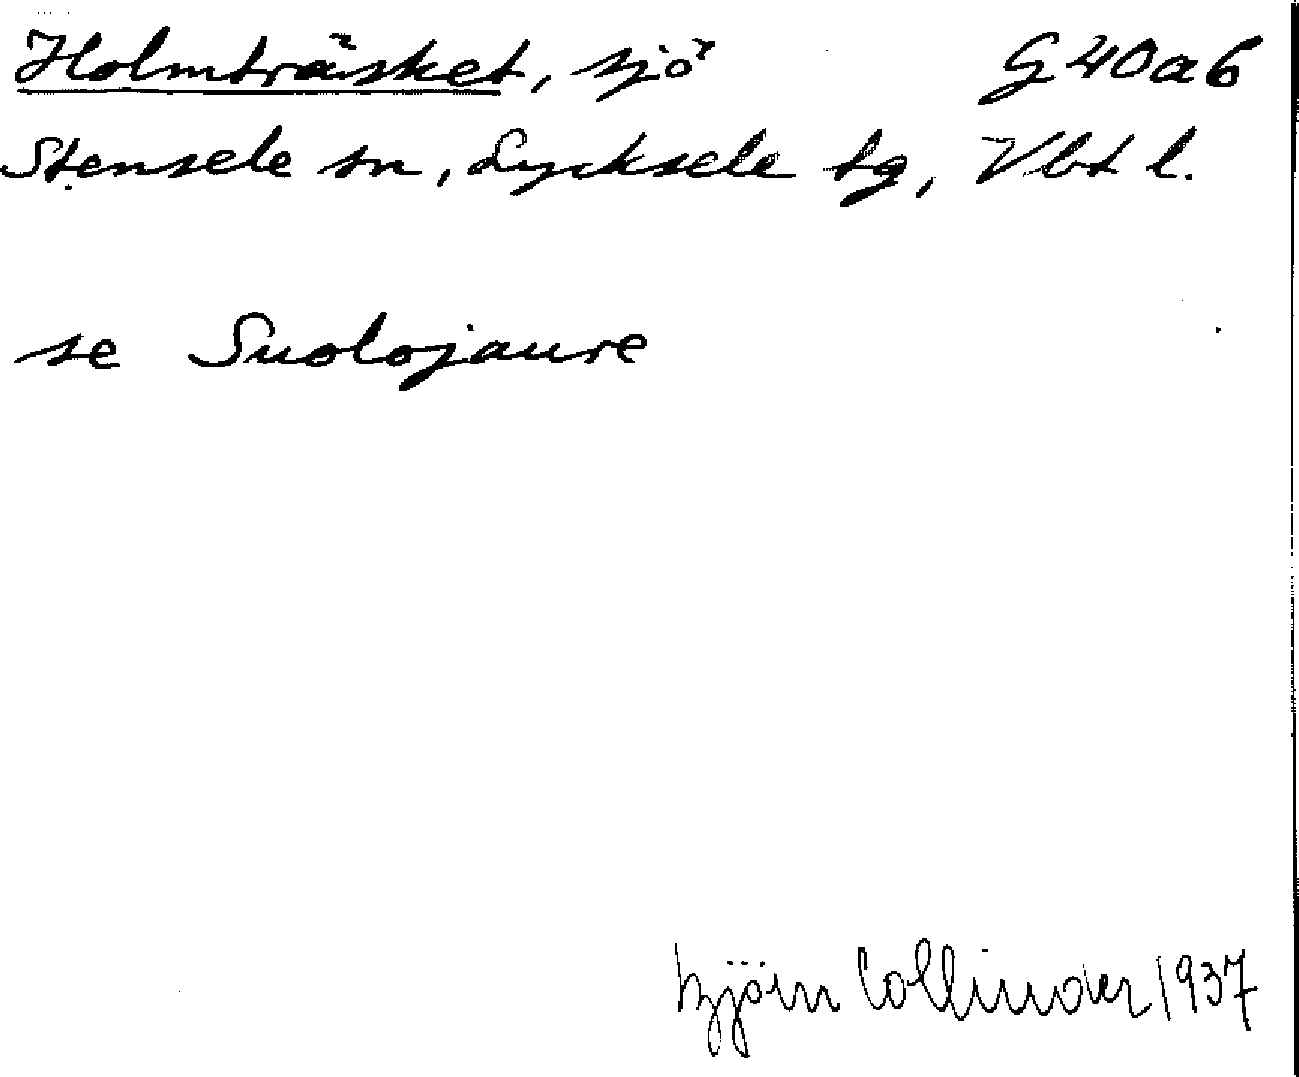 Holmträsket, sjö G 40 a 6
Stensele sn, Lycksele tg, Vbt l.
se Suolojaure
Björn Collinder 1937